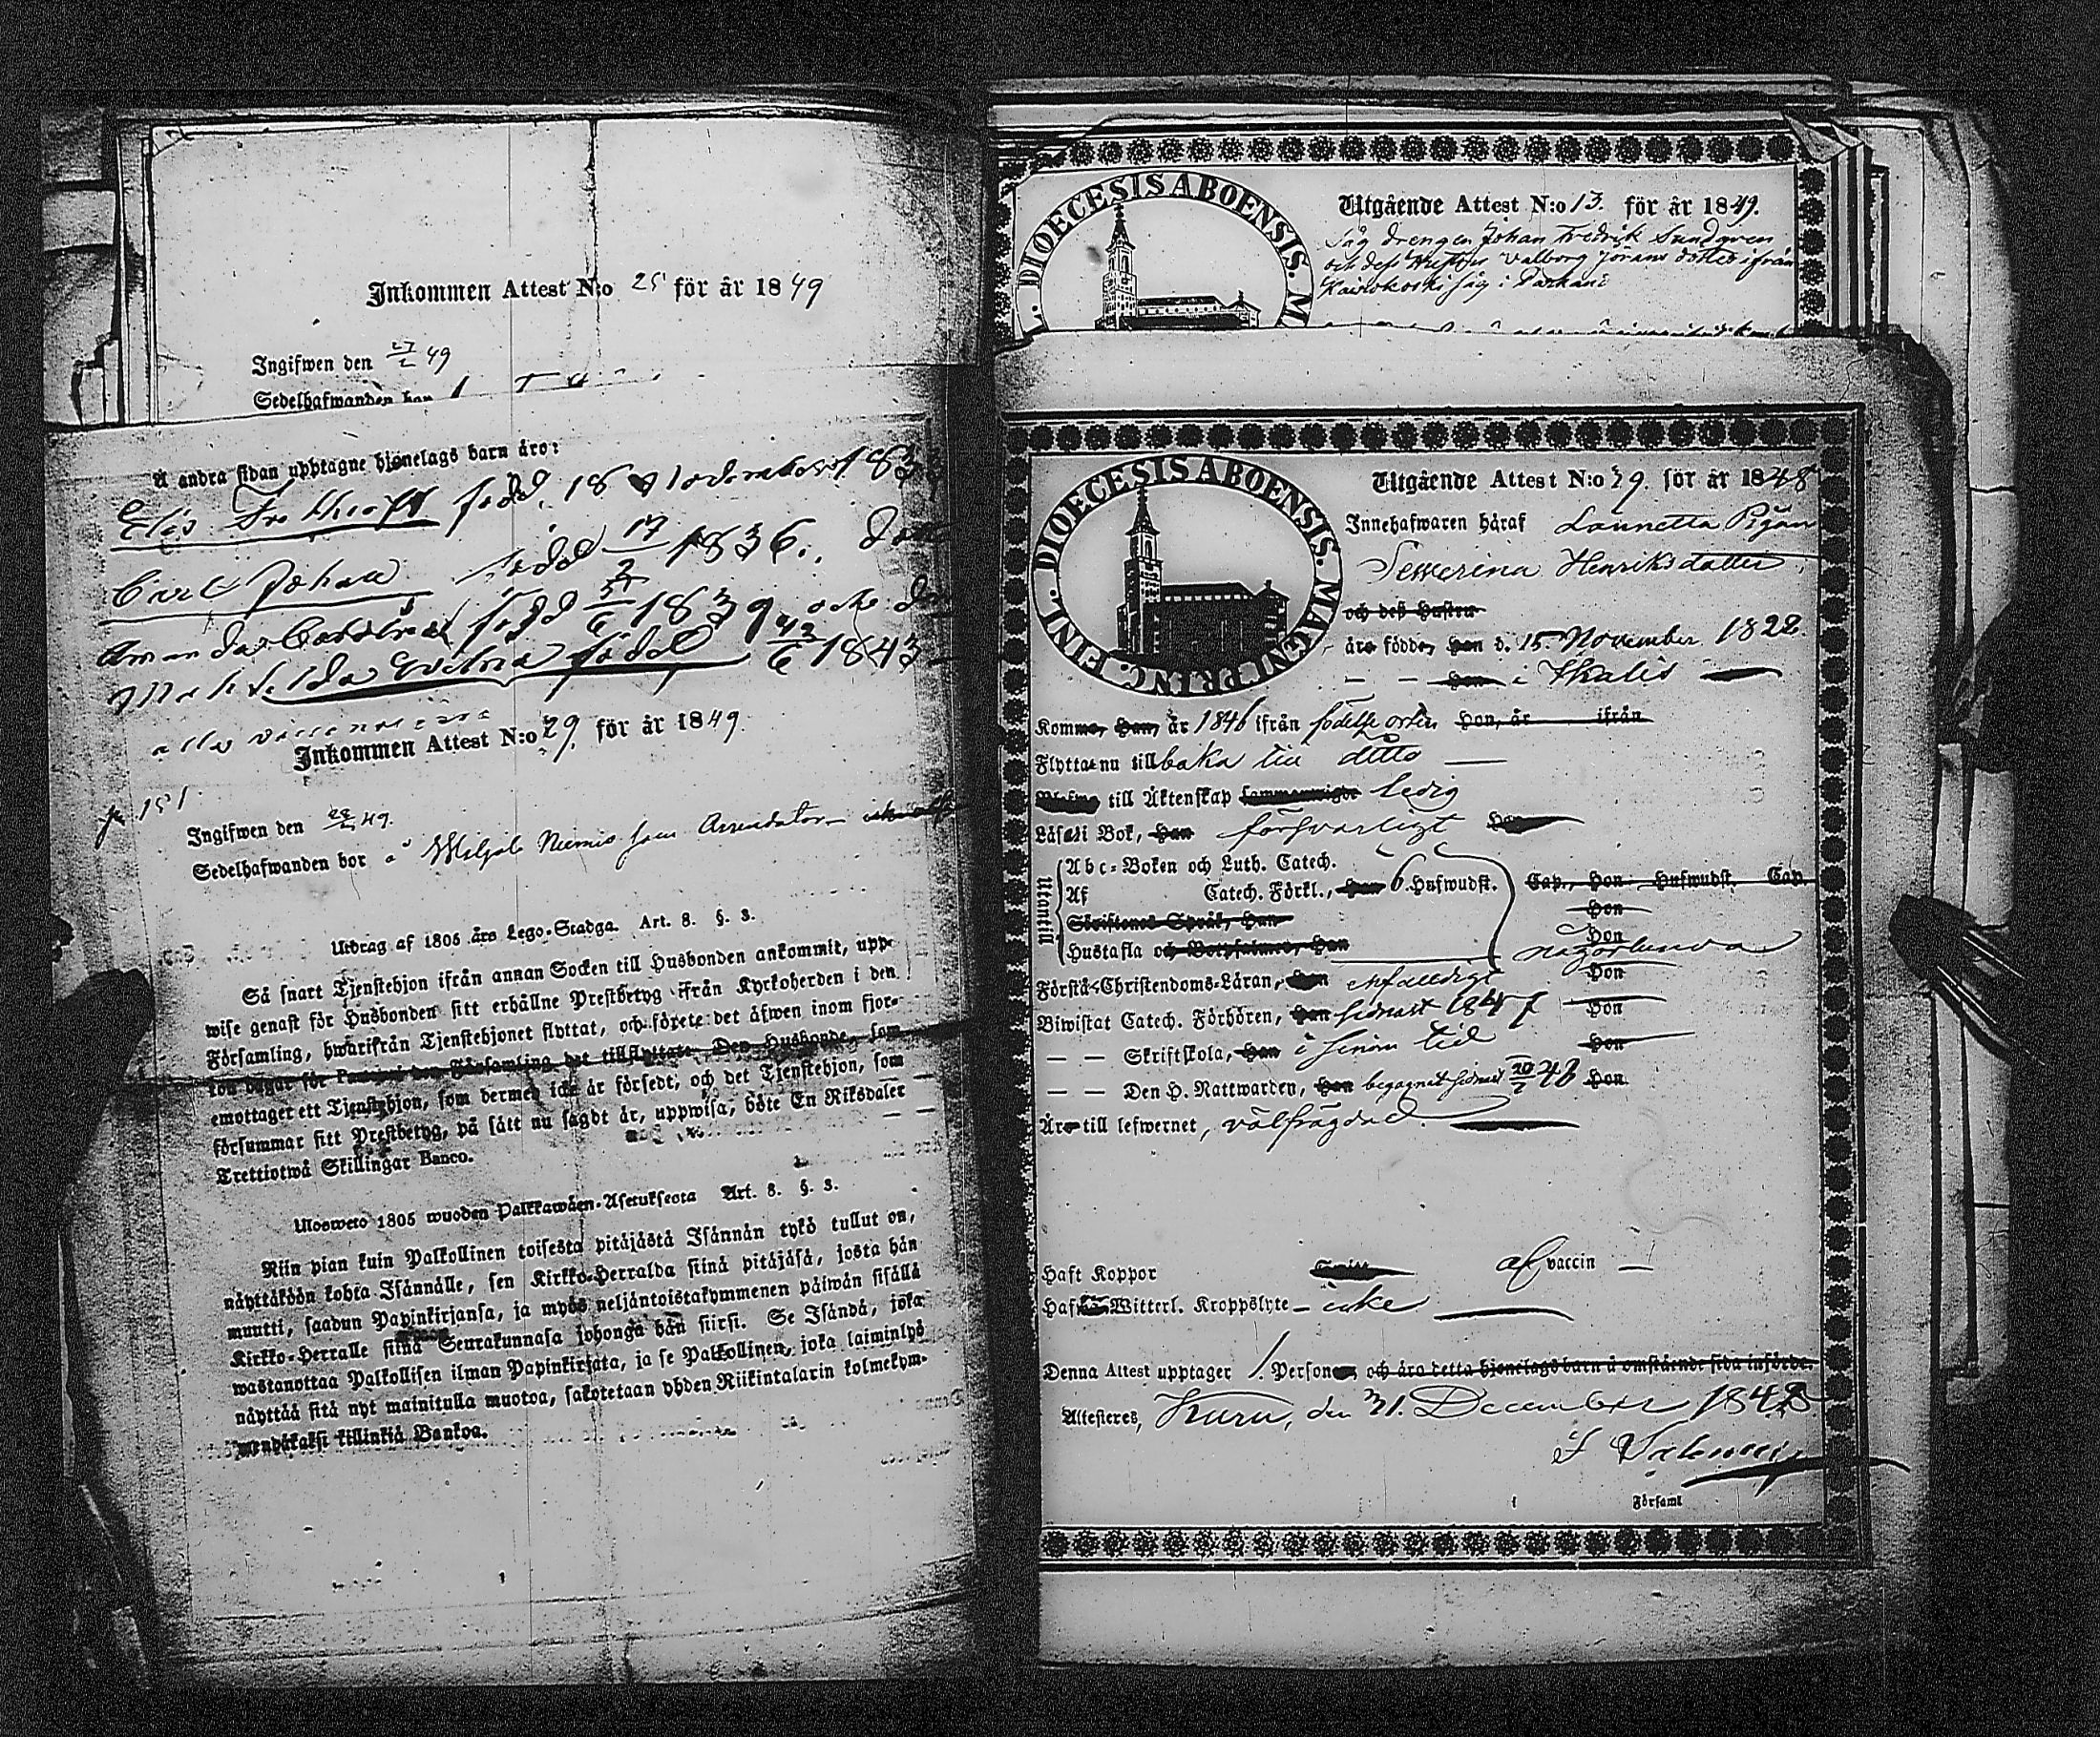 Inkommen Attest N:o 25 för år 1849
Ingifwen den 27/2 49
Sedelhafwanden bor
Å andra sidan upptagne hjonelags barn äro:
Elis född 18 November 183
Carl Johan född 17/2 1836.
Amanda född 1839 och
Mathilda född 1843
alla
Inkommen Attest N:o 29. för år 1849.
p 151.
Ingifwen den 49.
Sedelhafwanden bor å Niemis som Arrendator
Utdrag af 1805 års Lego-Stadga. Art. 8. §. 3.
Så snart Tjenstehjon ifrån annan Socken till Husbonden ankommit, upp-
wise genast för Husbonden sitt erhållne Prestbetyg ifrån Kyrkoherden i den
Församling, hwarifrån Tjenstehjonet flyttat, och förete det äfwen inom fjor-
ton dagar för i den Församling det tillflyttat. Den Husbonde, som
emottager ett Tjenstehjon, som dermed icke är försedt, och det Tjenstehjon, som
försummar sitt Prestbetyg, på sätt nu sagdt är, uppwisa, böte En Riksdaler
Trettiotwå Skillingar Banco.
Ulosweto 1805 wuoden Palkkawäen-Asetuksesta Art. 8. §. 3.
Niin pian kuin Palkollinen toisesta pitäjästä Isännän tykö tullut on,
näyttäköön kohta Isännälle, sen Kirkko-Herralda siinä pitäjäsä, josta hän
muutti, saadun Papinkirjansa, ja myös neljäntoistakymmenen päiwän sisällä
Kirkko-Herralle siinä Seurakunnasa johonga hän siirsi. Se Isändä, joka
wastanottaa Palkollisen ilman Papinkirjata, ja se Palkollinen, joka laiminlyö
näyttää sitä nyt mainitulla muotoa, sakotetaan yhden Riikintalarin kolmekym-
mendäkaksi killinkiä Bankoa.
DIOECESIS ABOENSIS. M
Utgående Attest N:o 13. för år 1849.
Såg drengen Johan Fredrik Sundgren
och dess Hustru Valborg Jörans dotter ifrån
Kairokoski såg i Parkano
FINL. DIOECESIS ABOENSIS. MAGNI PRINC.
Utgående Attest N:o 29. för år 1848
Innehafwaren häraf Lonnetta Pigan
Sewerina Henriksdotter,
och dess Hustru
äro födde, han d. 15. November 1822.
hon i Ikalis
Komme, han, år 1846 ifrån födelse orten hon, år ifrån
Flytta nu tillbaka till ditto
till Äktenskap sammanwigde ledig
Läsa i Bok, han försvarligt hon
Utantill
Abc-Boken och Luth. Catech.
Af Catech. Förkl., han 6. Hufwudst. Cap., hon Hufwudst. Cap.
Skriftenes Språk, han hon
Hustafla och Botpsalmer, han hon någorlunda
Förstå Christendoms-Läran, han enfaldigt hon
Biwistat Catech. Förhören, han sednast 1847 hon
— — Skriftskola, han i sinom tid hon
— — Den H. Nattwarden, han begagnat sednast 48 hon
Äro till lefwernet, välfrägdad.
Haft Koppor af vaccin
Hafwa Witterl. Kroppslyte — icke
Denna Attest upptager 1. Personer och äro detta hjonelags barn å omstående sida införde.
Attesteres, Kuru, den 31. December 1848
Församl